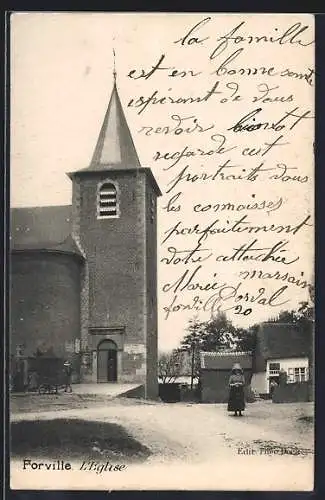 la famille
est en bonne santé
espérant de vous
revoir bientôt
regarde cest
portraits vous
les connaisses
parfaitement
votre attachee
Marie
Forville. L'Eglise
Edit.